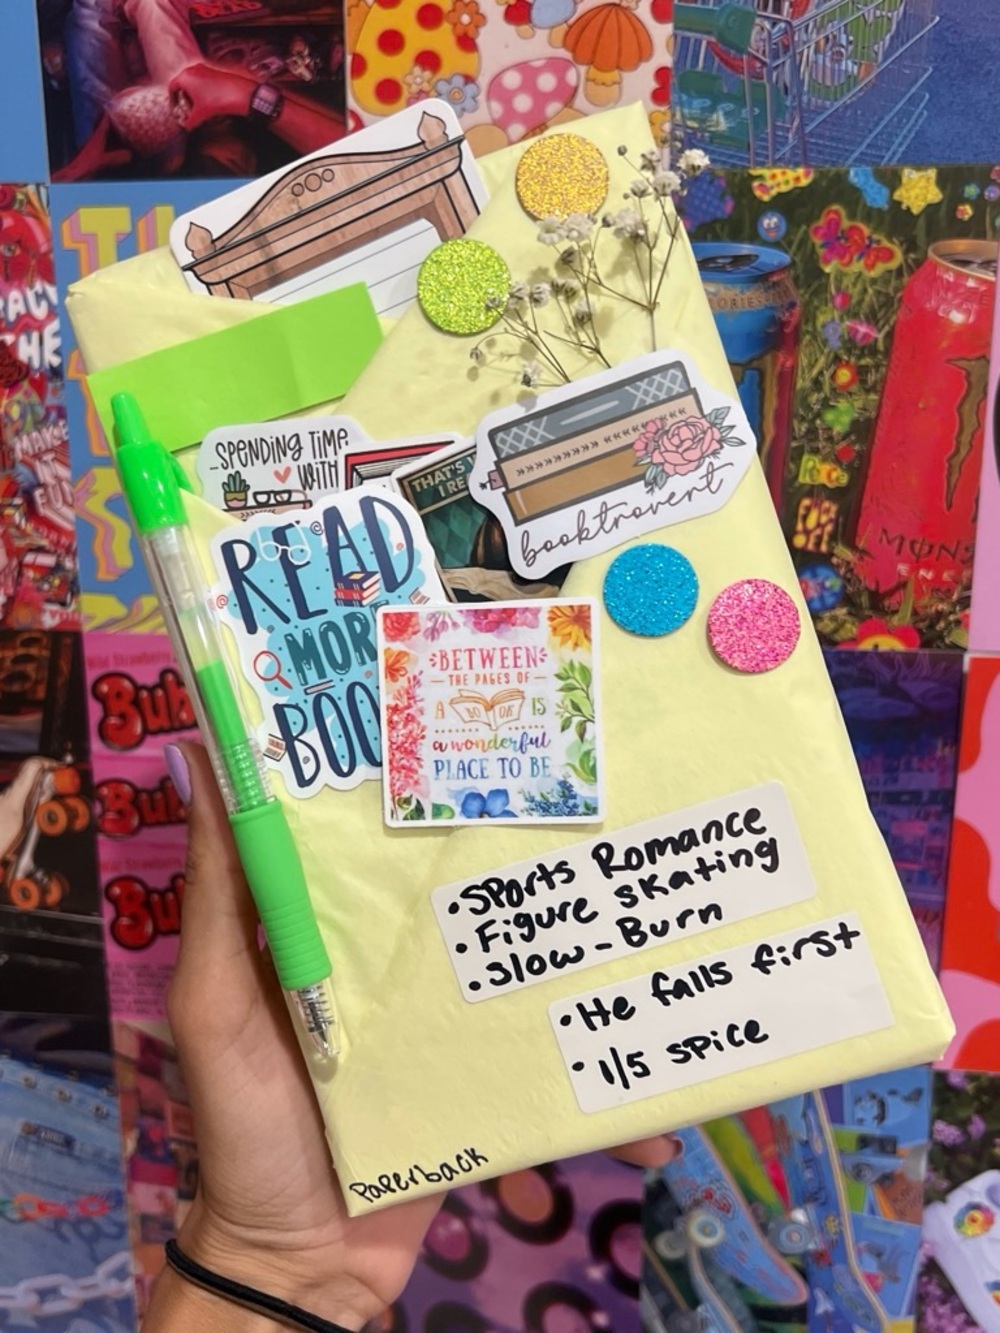 SPENDING TIME
WITH
THAT'S W
I RE
booktrovert
READ
MORE
BOO
BETWEEN
THE PAGES OF
A BOOK IS
a wonderful
PLACE TO BE
• Sports Romance
• Figure skating
• Slow-Burn
• He falls first
• 1/5 spice
Paperback
MAKE
IT
Bub
Bub
Bub
FUCK
OFF
MONS
ENE